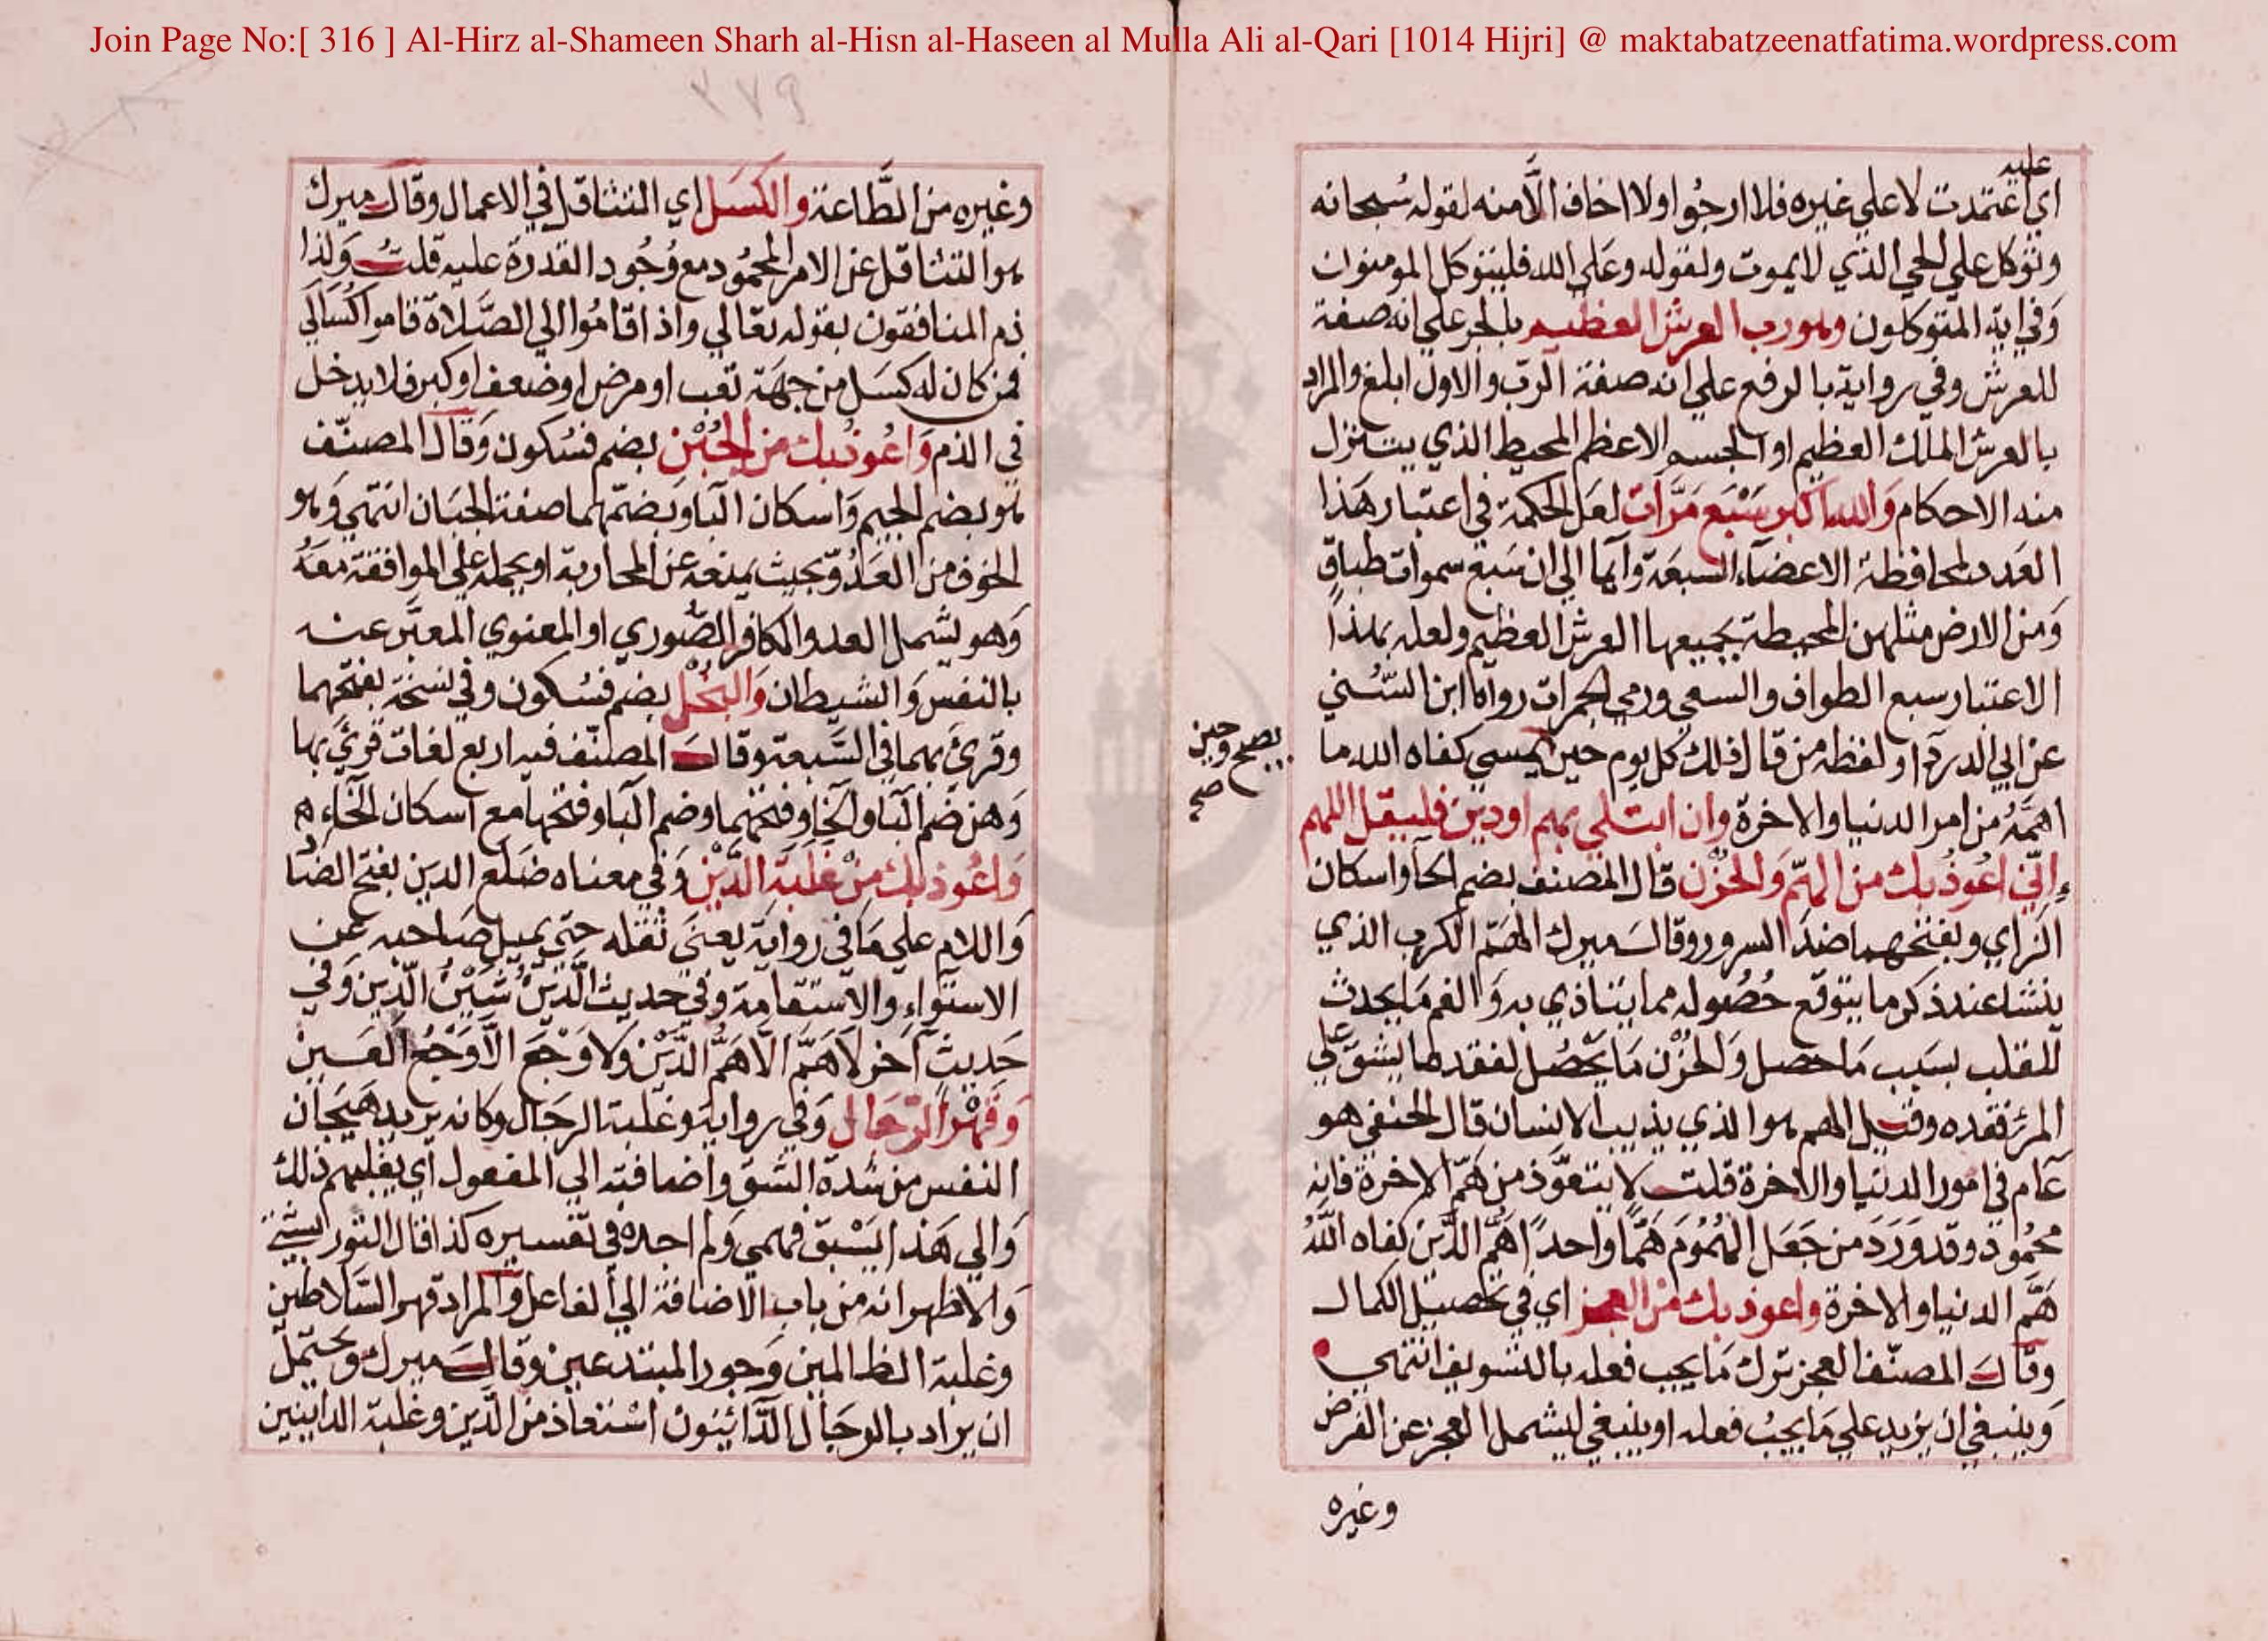 Join Page No:[ 316 ] Al-Hirz al-Shameen Sharh al-Hisn al-Haseen al Mulla Ali al-Qari [1014 Hijri] @ maktabatzeenatfatima.wordpress.com
عليه
اي اعتمدت لا علي غيره فلا ارجوا ولا اخاف الا منه لقوله سبحانه
وتوكل علي الحي الذي لا يموت ولقوله وعلي الله فليتوكل المومنون
وفي اية المتوكلون وهو رب العرش العظيم بالجر علي انه صفة
للعرش وفي رواية بالرفع علي انه صفة الرب والاول ابلغ والمراد
بالعرش الملك العظيم او الجسم الاعظم المحيط الذي يتنزل
منه الاحكام والله اكبر سَبْع مَرَّات لعل الحكمة في اعتبار هَذا
العدد لمحافظة الاعضاء السبعة وايما الي ان سبع سموات طباق
وَمن الارض مثلهن المحيطة بجميعها العرش العظيم ولعله بهذا
الاعتبار سبع الطواف والسعي ورمي الجمرات رواه ابن السُّني
عن ابي الدرداء ولفظه من قال ذلك كل يوم حين يمسي كفاه الله ما
يصبح وحين
صح
اهمَّهُ من امر الدنيا والاخرة وان ابتلي بهم او دين فليقل اللهم
إِنّي اعُوذُ بك من الهَمّ وَالحُزْن قال المصنف بضم الحا واسكان
الزاي وبفتحهما ضد السرور وقال ميرك الهَمّ الكرب الذي
ينشا عند ذكر ما يتوقع حُصُوله مما يتاذي به وَالغم مَا يحدث
للقلب بسَبب مَا حصل وَالحُزْن مَا يَحْصُل لفقد ما يشق عَلي
المرء فقده وقيل الهم هو الذي يذيب الانسان قال الحنفي هو
عَام في امور الدنيا والاخرة قلت لا يتعوَّذ من هَمّ الاخرة فانه
محمُود وقد وَرَدَ من جَعَل الهُمُومَ هَمًّا واحدًا هَمَّ الدّين كفاه اللَّهُ
هَمَّ الدنيا والاخرة واعوذ بك من العجز اي في تحصيل الكمال
وقال المصنّف العجز ترك مَا يجب فعله بالتسويف انتهي
وَينبغي ان يزيد علي مَا يجبُ فعله او ينبغي ليشمل العجز عن الفرض
وغيره
٢٧٩
وغيره من الطَّاعة والكسَل اي التثاقل في الاعمال وقال ميرك
هوا التثاقل عن الامر المحمُود مع وُجُود القدرة عليه قلتُ وَلذا
ذم المنافقون بقوله تعالي واذا قامُوا الي الصَّلاة قاموا كُسَالَي
فمن كان له كسَل من جهَة تعب او مرض او ضعف او كبر فلا يدخل
في الذم وَاعُوذ بك من الجُبْن بضم فسُكون وَقال المصنّف
هو بضم الجيم وَاسكان البا وَبضمّهما صفة الجَبان انتهي وَهو
الخوف من العَدُوّ بحيث يمنعه عن المحاربة او يحمله علي الموافقة معَهُ
وَهو يشمل العدو الكافر الصُّوري او المعنوي المعبَّر عنه
بالنفس وَالشيطان وَالبُخْل بضم فسُكون وفي نسخة بفتحهما
وقرئ بهما في السَّبعة وقال المصنّف فيه اربع لغات قرئَ بها
وَهن ضَم البَا والخا وفتحهما وضم البَا وفتحها مع اسكان الخَاء ه
وَاعُوذ بك منْ غَلَبَةِ الدَّيْن وَفي معناه ضَلَع الدين بفتح الضَّا
وَاللام علي مَا في رواية يعني ثقله حتي يميل صَاحبه عن
الاستواءِ والاستقامة وَفي حديث الدَّيْنُ شَيْنُ الدّين وَفي
حَديثٍ آخر لاَ هَمَّ الاَّ هَمُّ الدَّيْن وَلا وَجَعَ الاَّ وَجَعُ العَيْن
وَقَهْر الرّجَال وَفي رواية وَغلبة الرجَال وكانه يريد هَيَجَان
النفس من شدة الشبق وَاضافته الي المفعول اي يغلبهم ذلك
وَالي هَذا يَسْبق فهمي وَلم اجده في تفسيره كذا قال التوربشتي
وَالاظهر انه من باب الاضافة الي الفاعل وَالمراد قهر السَّلاطين
وغلبة الظالمين وَجور المبتدعين وقال ميرك وَيحتمل
ان يراد بالرجَال الدَّائِنون اسْتعاذ من الدَّين وغلبة الداينين